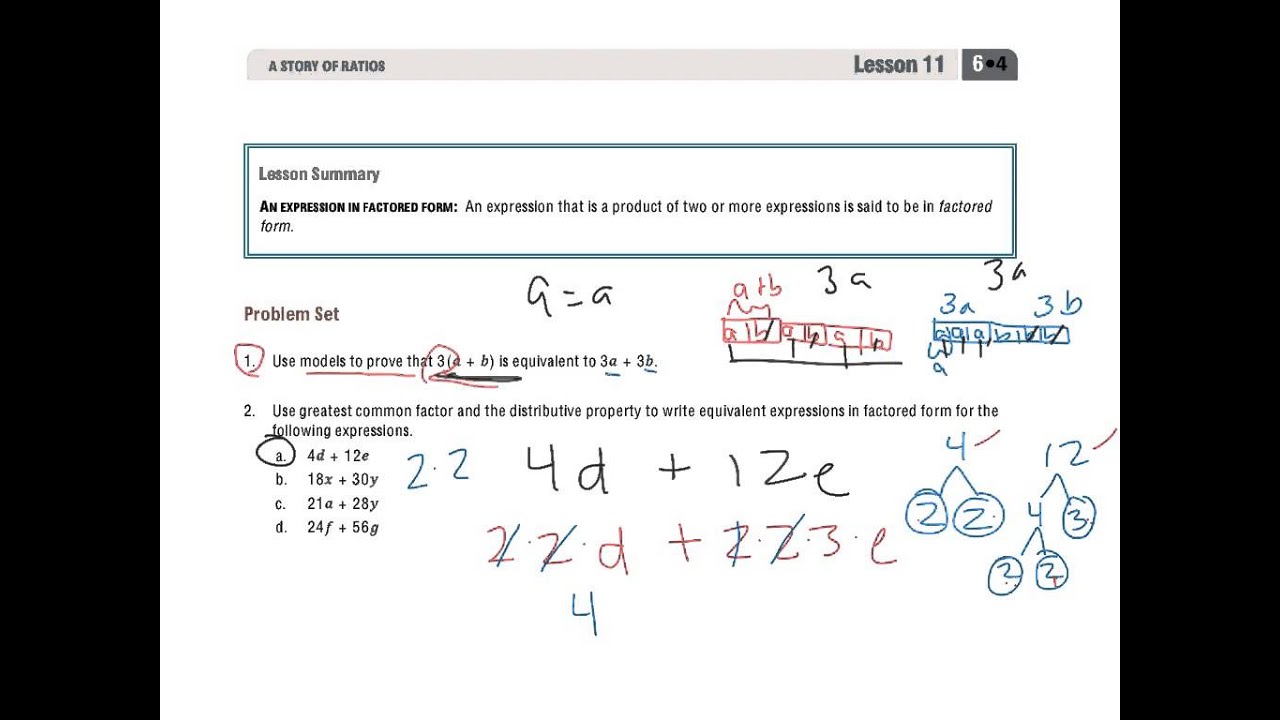 A STORY OF RATIOS Lesson 11 6•4
Lesson Summary
AN EXPRESSION IN FACTORED FORM: An expression that is a product of two or more expressions is said to be in factored
form.
a = a
a+b 3a 3a
3a 3b
a b a b a b
a a a b b b
a
Problem Set
1. Use models to prove that 3(a + b) is equivalent to 3a + 3b.
2. Use greatest common factor and the distributive property to write equivalent expressions in factored form for the
following expressions.
a. 4d + 12e
b. 18x + 30y
c. 21a + 28y
d. 24f + 56g
2·2 4d + 12e
2·2·d + 2·2·3·e
4
4 12
2 2 4 3
2 2